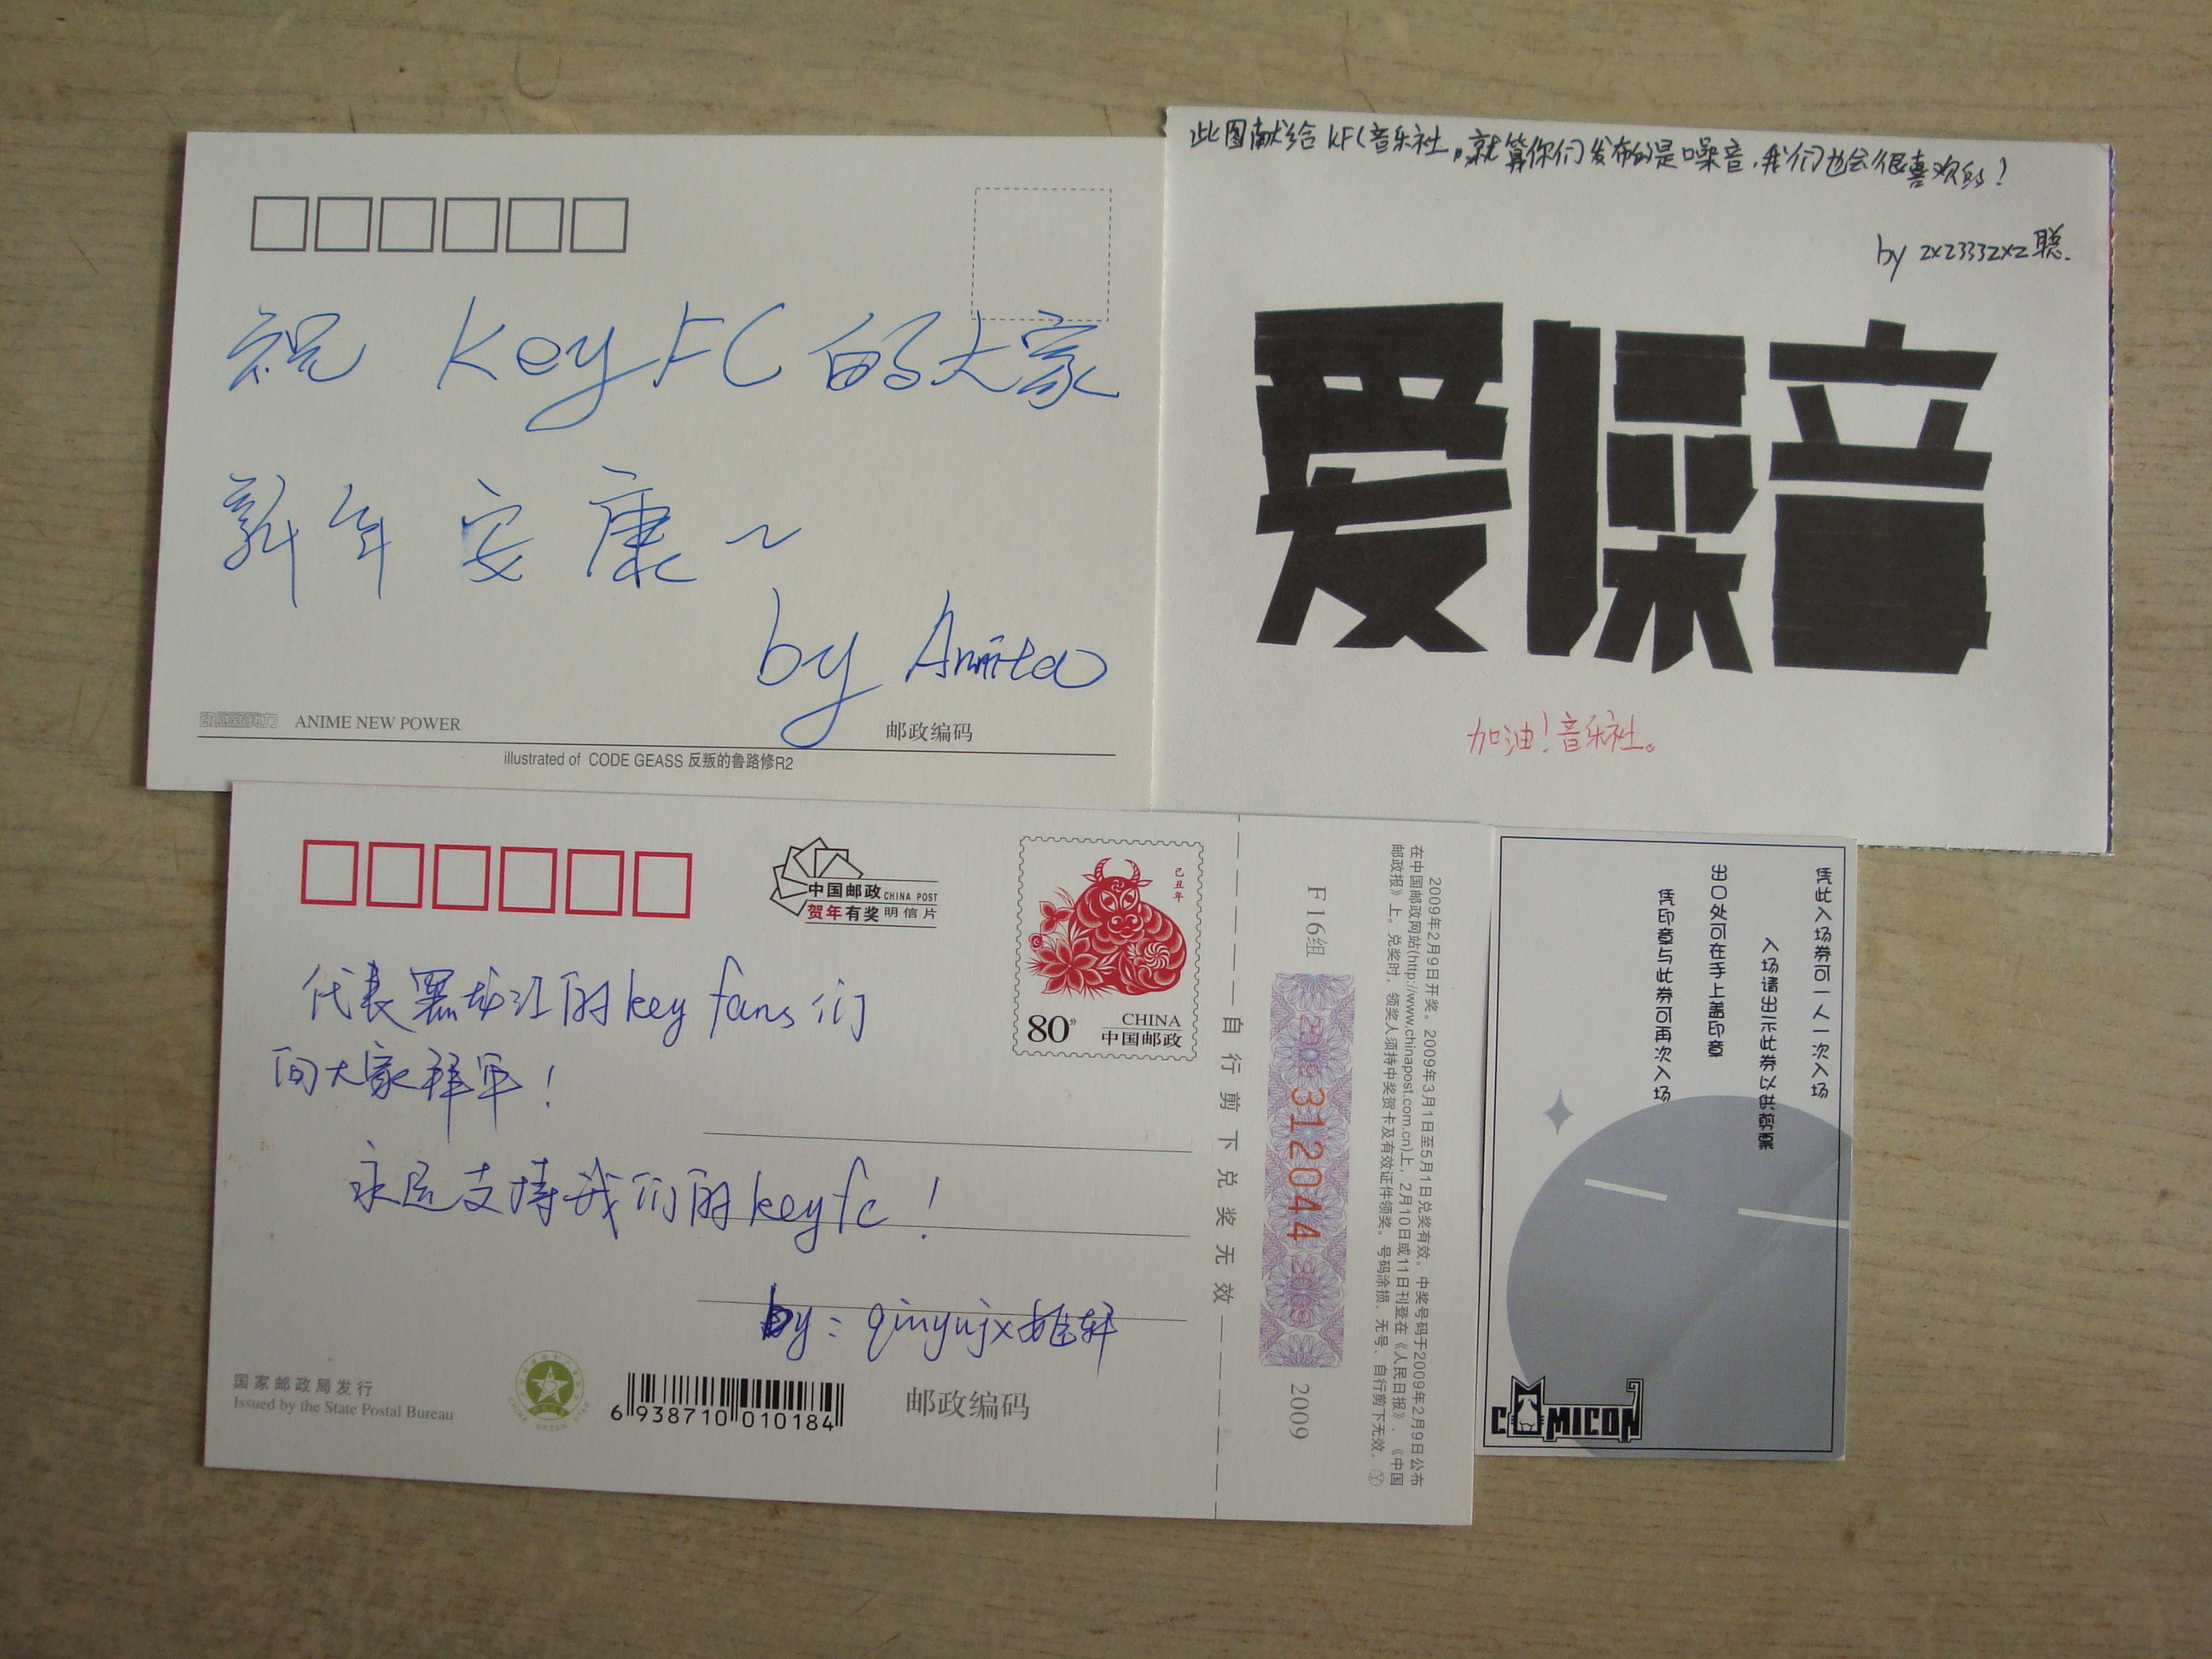 祝 KeyFC的大家
新年安康~
by Annita
动漫新势力 ANIME NEW POWER
邮政编码
illustrated of CODE GEASS 反叛的鲁路修R2
此图献给KFC音乐社。就算你们发布的是噪音,我们也会很喜欢的!
by zxz333zxz聪.
爱噪音
加油!音乐社。
中国邮政 CHINA POST
贺年有奖明信片
己丑年
80分
CHINA
中国邮政
代表黑龙江的key fans们
向大家拜年!
永远支持我们的keyfc!
by: qinyujx
国家邮政局发行
Issued by the State Postal Bureau
6 938710 010184
邮政编码
自行剪下兑奖无效
F16组
312044
2009
2009年2月9日开奖。2009年3月1日至5月1日兑奖有效。中奖号码于2009年2月9日公布
在中国邮政网站(http://www.chinapost.com.cn)上,2月10日或11日刊登在《人民日报》、《中国
邮政报》上。兑奖时,领奖人须持中奖贺卡及有效证件领奖。号码涂损、无号、自行剪下无效。
凭此入场券可一人一次入场
入场请出示此券以供剪票
出口处可在手上盖印章
凭印章与此券可再次入场
COMICON